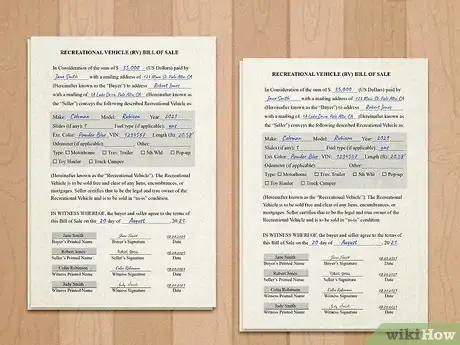 RECREATIONAL VEHICLE (RV) BILL OF SALE
In Consideration of the sum of $ 35,000 (US Dollars) paid
by Jane Smith with a mailing address of 123 Main St. Palo Alto, CA
(Hereinafter known as the "Buyer") to address Robert Jones
with a mailing of 1A Lake Drive, Palo Alto, CA (Hereinafter known as
the "Seller") conveys the following described Recreational Vehicle as:
Make: Coleman Model: Rubicon Year: 2021
Slides (if any): 1 Fuel type (if applicable):
Ext. Color: Powder Blue VIN: 1234567 Length (ft):
Odometer (if applicable): Other:
Type: ☐ Motorhome ☐ Trav. Trailer ☐ 5th Whl ☐ Pop-up
☐ Toy Hauler ☐ Truck Camper
(Hereinafter known as the "Recreational Vehicle"). The
Recreational is to be sold free and clear of any liens, encumbrances, or
mortgages. Seller certifies that to be the legal and true owner of the
Recreational Vehicle and is to be sold in "as-is" condition.
IN WITNESS WHEREOF, the buyer and seller agree to the terms of
this Bill of Sale on the 20 day of August, 2021.
Jane Smith Jane Smith
Buyer's Printed Name Buyer's Signature Date
Robert Jones Robert Jones
Seller's Printed Name Seller's Signature Date
Colin Robinson Colin Robinson
Witness Printed Name Witness Signature Date
Judy Smith Judy Smith
Witness Printed Name Witness Signature Date
RECREATIONAL VEHICLE (RV) BILL OF SALE
In Consideration of the sum of $ 35,000 (US Dollars) paid
by Jane Smith with a mailing address of 123 Main St. Palo Alto, CA
(Hereinafter known as the "Buyer") to address Robert Jones
with a mailing of 1A Lake Drive, Palo Alto, CA (Hereinafter known as
the "Seller") conveys the following described Recreational Vehicle as:
Make: Coleman Model: Rubicon Year: 2021
Slides (if any): 1 Fuel type (if applicable):
Ext. Color: Powder Blue VIN: 1234567 Length (ft):
Odometer (if applicable): Other:
Type: ☐ Motorhome ☐ Trav. Trailer ☐ 5th Whl ☐ Pop-up
☐ Toy Hauler ☐ Truck Camper
(Hereinafter known as the "Recreational Vehicle"). The
Recreational is to be sold free and clear of any liens, encumbrances, or
mortgages. Seller certifies that to be the legal and true owner of the
Recreational Vehicle and is to be sold in "as-is" condition.
IN WITNESS WHEREOF, the buyer and seller agree to the terms of
this Bill of Sale on the 20 day of August, 2021.
Jane Smith Jane Smith
Buyer's Printed Name Buyer's Signature Date
Robert Jones Robert Jones
Seller's Printed Name Seller's Signature Date
Colin Robinson Colin Robinson
Witness Printed Name Witness Signature Date
Judy Smith Judy Smith
Witness Printed Name Witness Signature Date
wikiHow